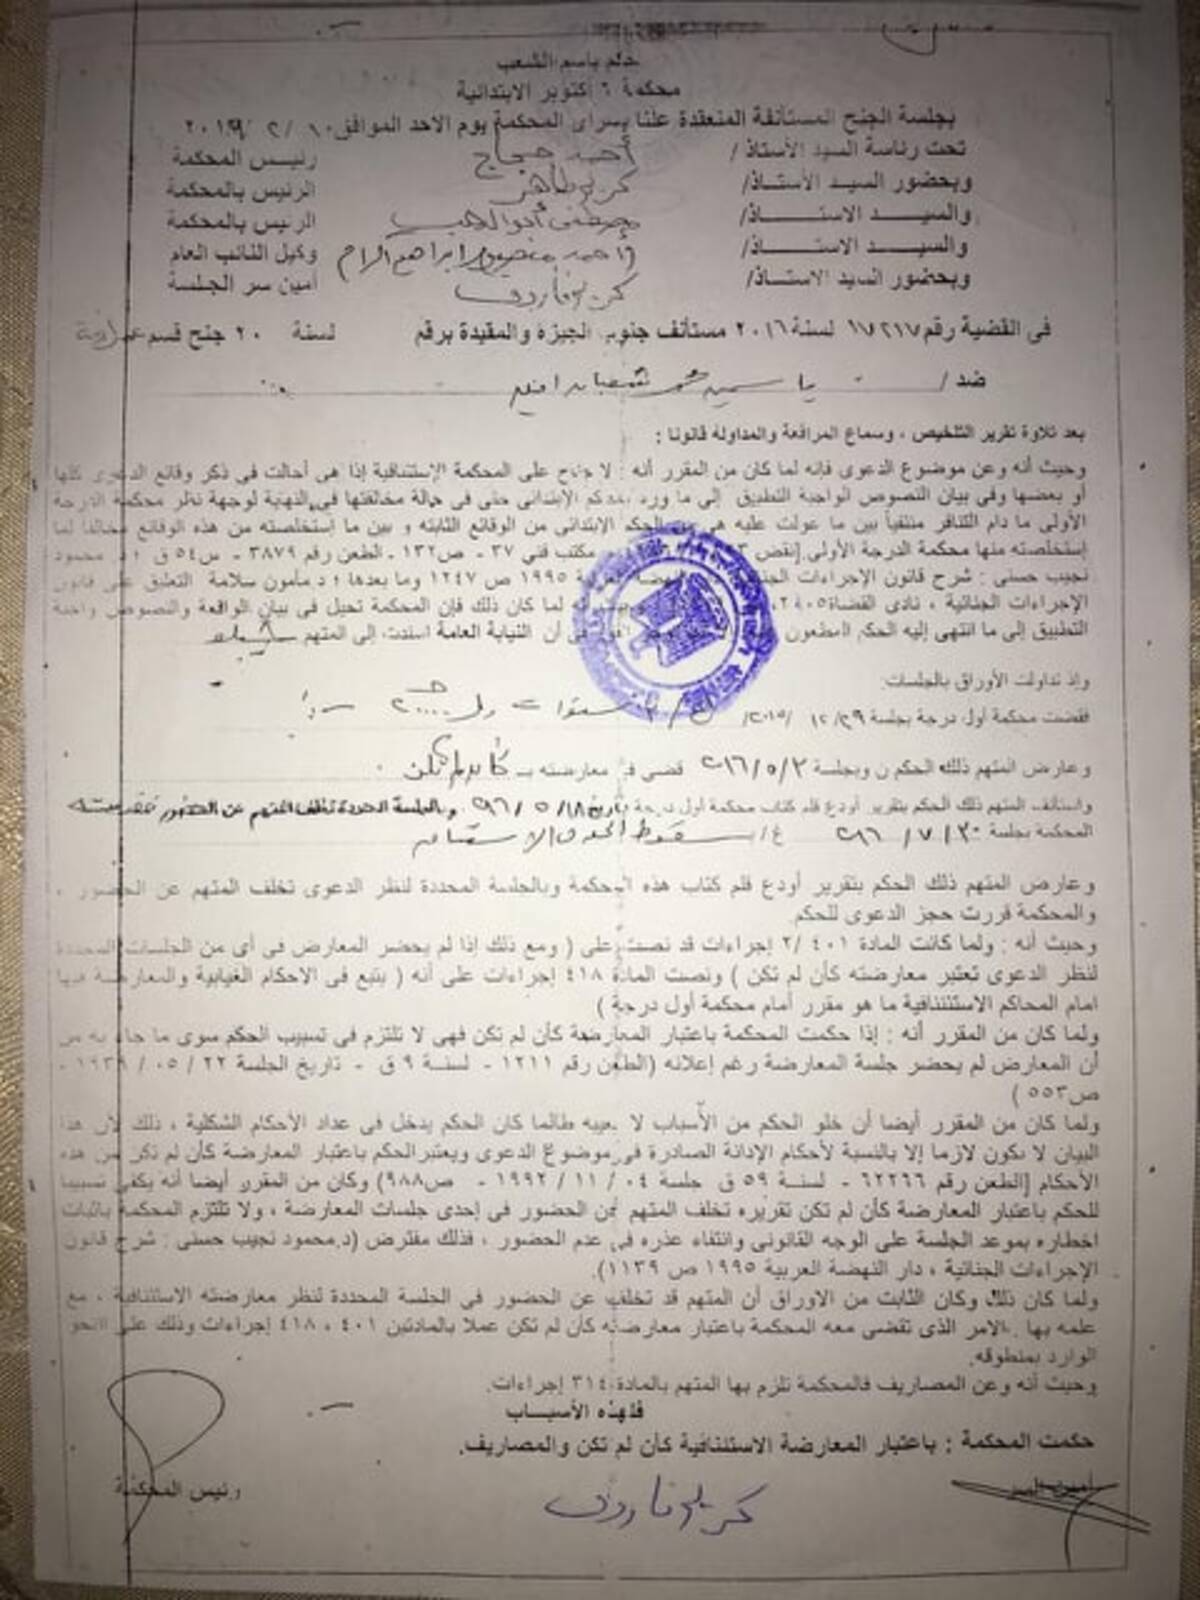 حكم باسم الشعب
محكمة ٦ أكتوبر الابتدائية
بجلسة الجنح المستأنفة المنعقدة علنا بسراى المحكمة يوم الاحد الموافق ١٠ / ٢ / ٢٠١٩
تحت رئاسة السيد الأستاذ / أحمد حجاج رئيس المحكمة
وبحضور السيد الأستاذ/ كريم طاهر الرئيس بالمحكمة
والسيد الاستاذ/ مصطفى الرئيس بالمحكمة
والسيد الاستاذ/ احمد ابراهيم وكيل النائب العام
وبحضور السيد الاستاذ/ كريم فاروق أمين سر الجلسة
فى القضية رقم ١٧٢١٧ لسنة ٢٠١٦ مستأنف جنوب الجيزة والمقيدة برقم لسنة ٢٠ جنح قسم
ضد / ياسمين شعبان
بعد تلاوة تقرير التلخيص ، وسماع المرافعة والمداولة قانونا :
وحيث أنه وعن موضوع الدعوى فإنه لما كان من المقرر أنه : لا جناح على المحكمة الإستئنافية إذا هى أحالت فى ذكر وقائع الدعوى كلها
أو بعضها وفى بيان النصوص الواجبة التطبيق إلى ما ورد بالحكم الإبتدائى حتى فى حالة مخالفتها فى النهاية لوجهة نظر محكمة الدرجة
الأولى ما دام التنافر منتفياً بين ما عولت عليه هى من الحكم الإبتدائى من الوقائع الثابته و بين ما إستخلصته من هذه الوقائع مخالفا لما
إستخلصته منها محكمة الدرجة الأولى.[نقض مكتب فني ٣٧ - ص١٣٢ - الطعن رقم ٣٨٧٩ - س٥٤ ق ؛ د. محمود
نجيب حسنى : شرح قانون الإجراءات الجنائية النهضة العربية ١٩٩٥ ص ١٢٤٧ وما بعدها ؛ د مأمون سلامة التعليق على قانون
الإجراءات الجنائية ، نادى القضاة ٢٠٠٥، لما كان ذلك فإن المحكمة تحيل فى بيان الواقعة والنصوص واجبة
التطبيق إلى ما انتهى إليه الحكم المطعون فى أن النيابة العامة اسندت إلى المتهم
وإذ تداولت الأوراق بالجلسات.
فقضت محكمة أول درجة بجلسة ٢٩/ ١٢ /٢٠١٥ سنوات
وعارض المتهم ذلك الحكم ن وبجلسة ٣ /٥ /٢٠١٦ قضى فى معارضته بـ كأن لم تكن
واستأنف المتهم ذلك الحكم بتقرير أودع قلم كتاب محكمة أول درجة بتاريخ ١٨/ ٥ / وبالجلسة المحددة تخلف المتهم عن الحضور فقضت
المحكمة بجلسة ٣٠ / ٧ / غ/ سقوط الحق الاستئناف
وعارض المتهم ذلك الحكم بتقرير أودع قلم كتاب هذه المحكمة وبالجلسة المحددة لنظر الدعوى تخلف المتهم عن الحضور ،
والمحكمة قررت حجز الدعوى للحكم
وحيث أنه : ولما كانت المادة ٤٠١ /٢ إجراءات قد نصت على ( ومع ذلك إذا لم يحضر المعارض فى أى من الجلسات المحددة
لنظر الدعوى تعتبر معارضته كأن لم تكن ) ونصت المادة ٤١٨ إجراءات على أنه ( يتبع فى الاحكام الغيابية والمعارضة فيها
امام المحاكم الاستئنافية ما هو مقرر أمام محكمة أول درجة )
ولما كان من المقرر أنه : إذا حكمت المحكمة باعتبار المعارضة كأن لم تكن فهى لا تلتزم فى تسبيب الحكم سوى ما جاء به من
أن المعارض لم يحضر جلسة المعارضة رغم إعلانه (الطعن رقم ١٢١١ - لسنة ٩ ق - تاريخ الجلسة ٢٢ / ٠٥ / ١٩٣٩ -
ص٥٥٣ )
ولما كان من المقرر أيضا أن خلو الحكم من الأسباب لا يعيبه طالما كان الحكم يدخل فى عداد الأحكام الشكلية ، ذلك لأن هذا
البيان لا يكون لازما إلا بالنسبة لأحكام الإدانة الصادرة فى موضوع الدعوى ويعتبر الحكم باعتبار المعارضة كأن لم تكن من هذه
الأحكام [الطعن رقم ٦٢٢٦٦ - لسنة ٥٩ ق جلسة ٠٤ / ١١ / ١٩٩٢ - ص٩٨٨) وكان من المقرر أيضا أنه يكفى تسبيبا
للحكم باعتبار المعارضة كأن لم تكن تقريره تخلف المتهم عن الحضور فى إحدى جلسات المعارضة ، ولا تلتزم المحكمة باثبات
اخطاره بموعد الجلسة على الوجه القانونى وانتفاء عذره فى عدم الحضور ، فذلك مفترض (د.محمود نجيب حسنى : شرح قانون
الإجراءات الجنائية ، دار النهضة العربية ١٩٩٥ ص ١١٣٩).
ولما كان ذلك وكان الثابت من الاوراق أن المتهم قد تخلف عن الحضور فى الجلسة المحددة لنظر معارضته الاستئنافية ، مع
علمه بها . الامر الذى تقضى معه المحكمة باعتبار معارضته كأن لم تكن عملا بالمادتين ٤٠١ ، ٤١٨ إجراءات وذلك على النحو
الوارد بمنطوقه.
وحيث أنه وعن المصاريف فالمحكمة تلزم بها المتهم بالمادة ٣١٤ إجراءات.
فلهذه الأسباب
حكمت المحكمة : باعتبار المعارضة الاستئنافية كأن لم تكن والمصاريف.
أمين السر رئيس المحكمة
كريم فاروق